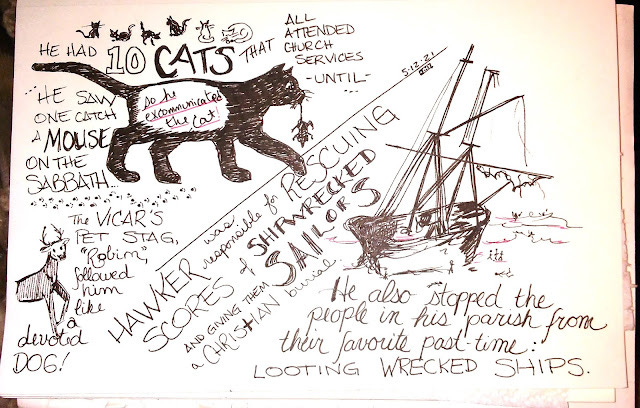 HE HAD 10 CATS THAT
ALL
ATTENDED
CHURCH
SERVICES
-UNTIL-
HE SAW
ONE CATCH
A MOUSE
ON THE
SABBATH...
so he
excommunicated
the cat!
The VICAR'S
PET STAG,
"Robin",
followed
him
like
a
devoted
DOG!
5-12-21
HAWKER was responsible for RESCUING
SCORES of SHIPWRECKED
SAILORS
AND GIVING THEM
a CHRISTIAN burial.
He also stopped the
people in his parish from
their favorite past-time:
LOOTING WRECKED SHIPS.